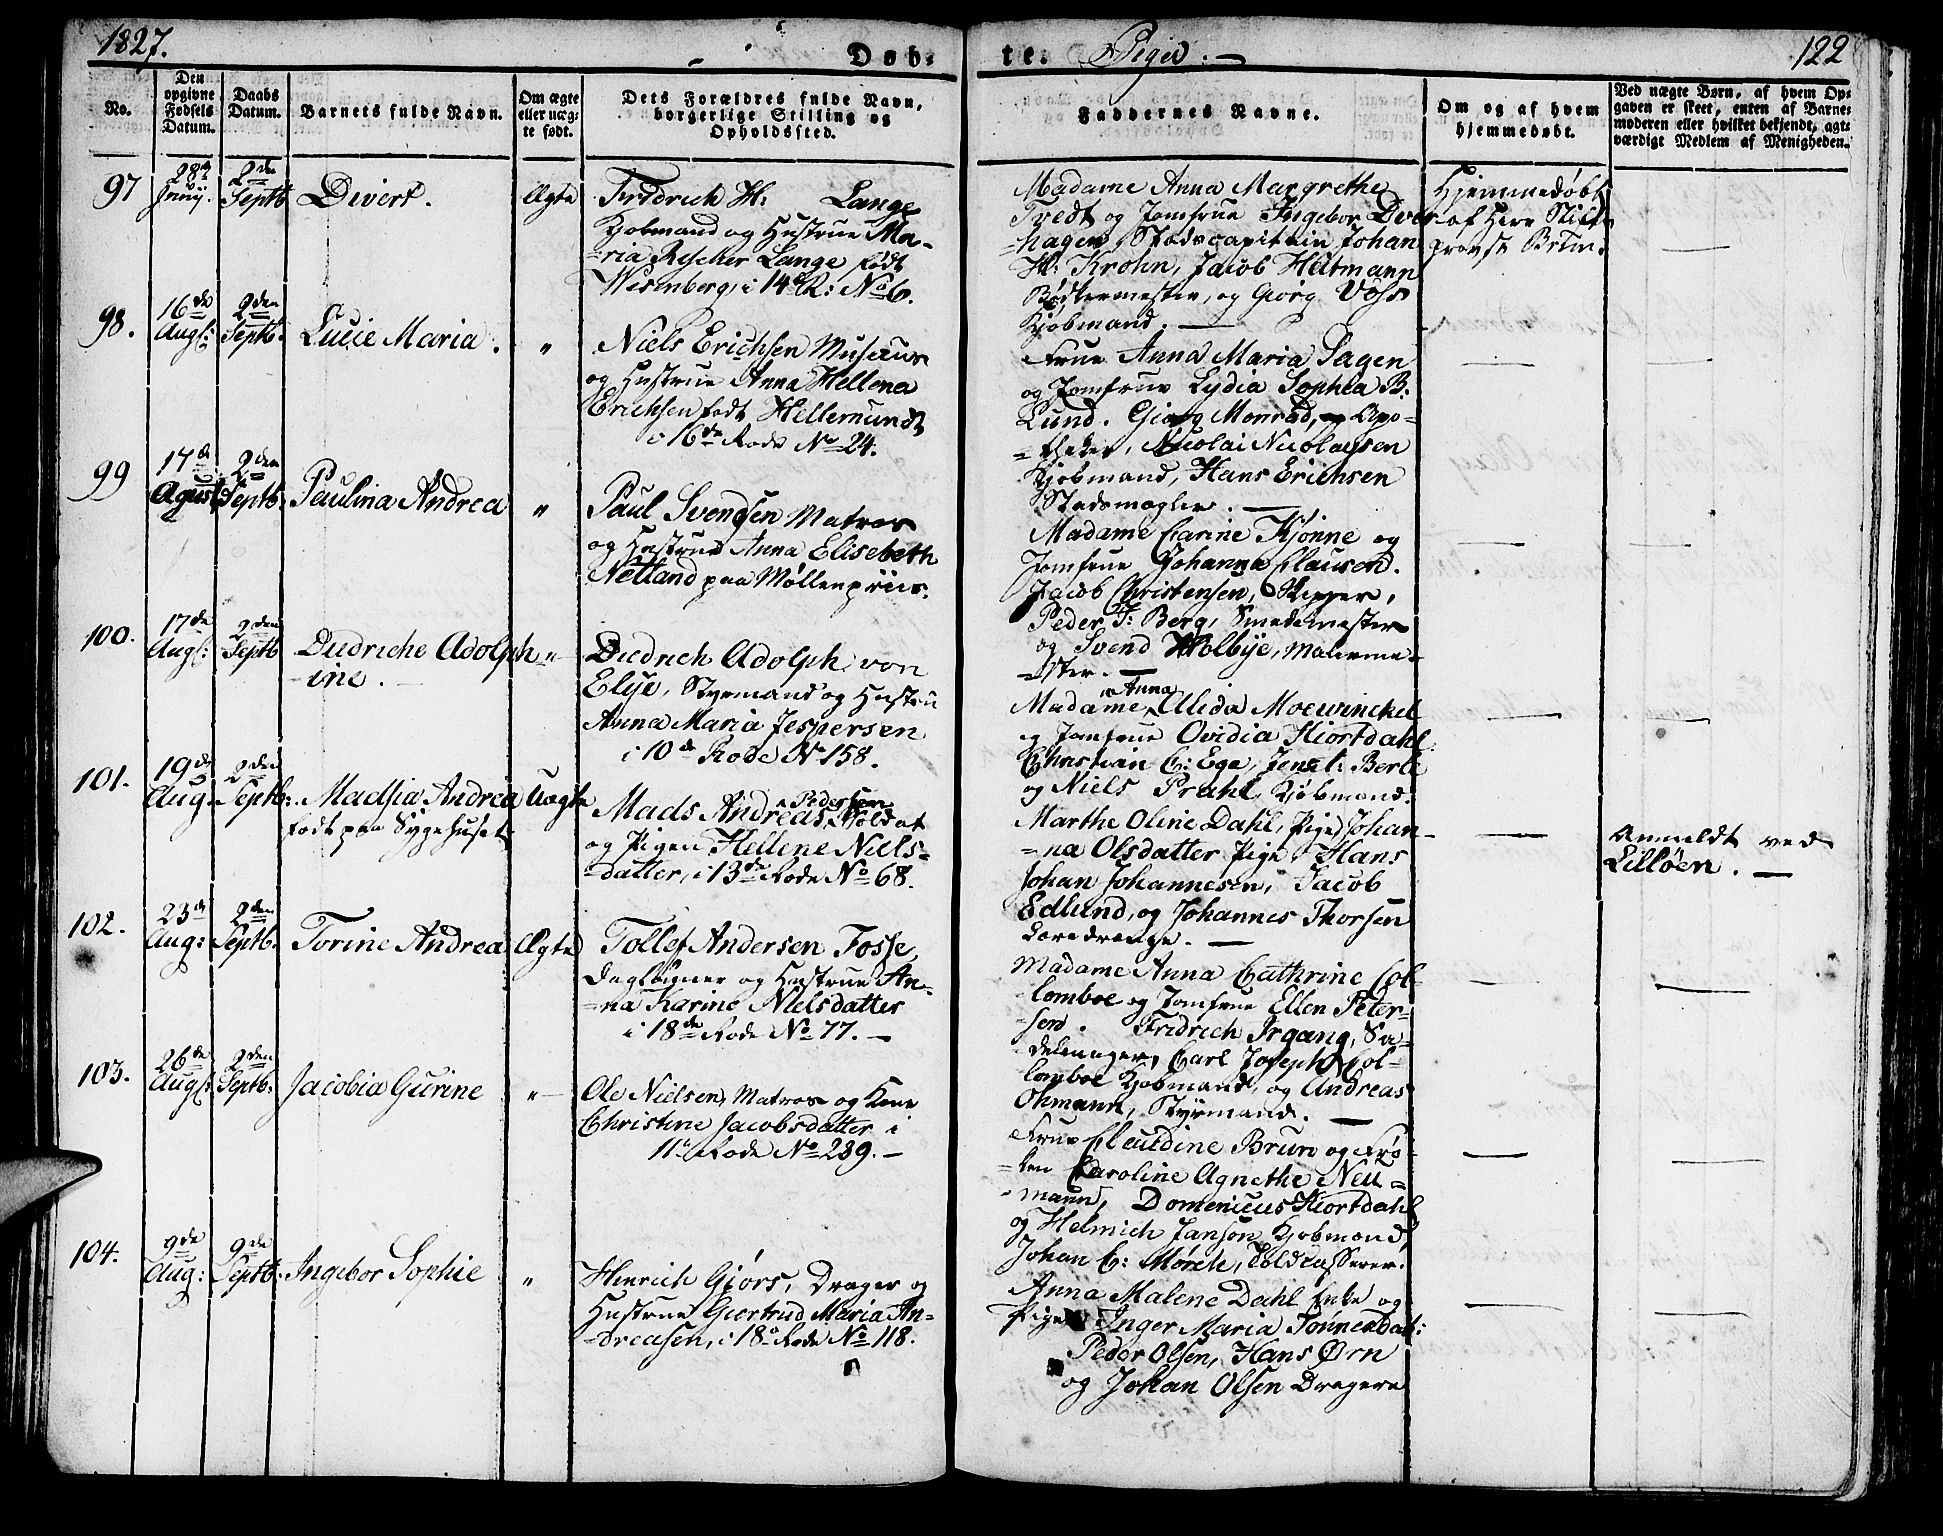 1827.
Døb-
te. Piger. —
122
No.
Den
opgivne
Fødsels
Datum.
Daabs
Datum.
Barnets fulde Navn.
Om ægte
eller uæg-
te født.
Dets Forældres fulde Navn,
borgerlige Stilling og
Opholdssted.
Faddernes Navne.
Om og af hvem
hjemmedøbt.
Ved uægte Børn, af hvem Op-
gaven er skeet, enten af Barne-
moderen eller hvilket bekjendt, agt-
værdigt Medlem af Menigheden.
97
28de
2den
Septb
Divert.
Ægte
Fridrich H: Lange
Kjøbmand og Hustrue Ma-
-ria Rescher Lange født
Wesenberg, i 14de R: No 6.
Madame Anna Margrethe
Tvedt og Jomfrue Ingebor Dver-
-hagen, Stadscapitain Johan
H: Krohn, Jacob Heltmann
Bødkermester, og Georg Voss
Kjøbmand. —
Hjemmedøbt
af Herr Stifts-
provst Brun.
98.
16de
Aug:
2den
Septb.
Lucie Maria.
"
Niels Erichsen Musæus
og Hustrue Anna Hellena
Erichsen født Hellemundt
i 16de Rode No 24.
Frue Anna Maria Sagen
og Jomfrue Lydia Sophia B:
Lund. Georg Monrad, Apo-
-theker, Nicolai Nicolaysen
Kjøbmand, Hans Erichsen
Stadsmægler. —
99
17de
Agust
2den
Septb:
Paulina Andrea
"
Paul Svendsen Matros
og Hustrue Anna Elisebeth
Netland paa Møllenpriis.
Madame Carine Kjønne og
Jomfrue Johanna Clausen.
Jacob Christensen, Skipper,
Peder J: Berg, Smedemester
og Svend Holbye, Malerme-
-ster. —
100.
17de
Aug:
2den
Septb
Diedriche Adolph
-ine.
"
Diedrich Adolph von
Elye, Styrmand og Hustru
Anna Maria Jespersen
i 10de Rode No 158.
Madame Anna Alida Mowinckel
og Jomfrue Ovidia Hiortdahl
Christian C: Ege,
og Niels Prahl, Kjøbmænd.
101.
19de
Aug.
2den
Septb:
Madsia Andrea
født paa Sygehuset
Uægte
Mads Andreas Pedersen Soldat
og Pigen Hellene Niels-
-datter, i 13de Rode No 68.
Marthe Oline Dahl, Pige, Johan-
-na Olsdatter Pige, Hans
Johan Johannesen, Jacob
Edlund, og Johannes Thorsen
Læredrenge. —
Anmeldt ved
Lilløen. —
102.
23de
Aug:
2den
Septb.
Torine Andrea
Ægte
Tollef Andersen Fosse,
Dagløhner og Hustrue An-
-na Karine Nielsdatter
i 18de Rode No 77. —
Madame Anna Cathrine Col-
lomboe og Jomfrue Ellen Peter-
-sen. Fridrich Irgang, Sa-
delmager, Carl Joseph Col-
lomboe Kjøbmand, og Andreas
Ohmann, Styrmand. —
103.
26de
Aug:
2den
Septb:
Jacobia Gurine
"
Ole Nielsen, Matros og Kone
Christine Jacobsdatter i
11te Rode No 289. —
Frue Claudine Brun og Frø-
ken Caroline Agnethe Neu-
-mann, Domenicus Hiortdahl
og Helmich Janson Kjøbmænd,
Johan C: Mørch,
104.
9de
Aug:
9de
Septb.
Ingebor Sophie
"
Hinrich Gjørs, Drager og
Hustrue Giertrud Maria An-
-dreasen, i 18de Rode No 118.
Anna Malene Dahl Enke og
Pige Inger Maria Tønnesdat:
Peder Olsen, Hans Ørn
og Johan Olsen Dragere